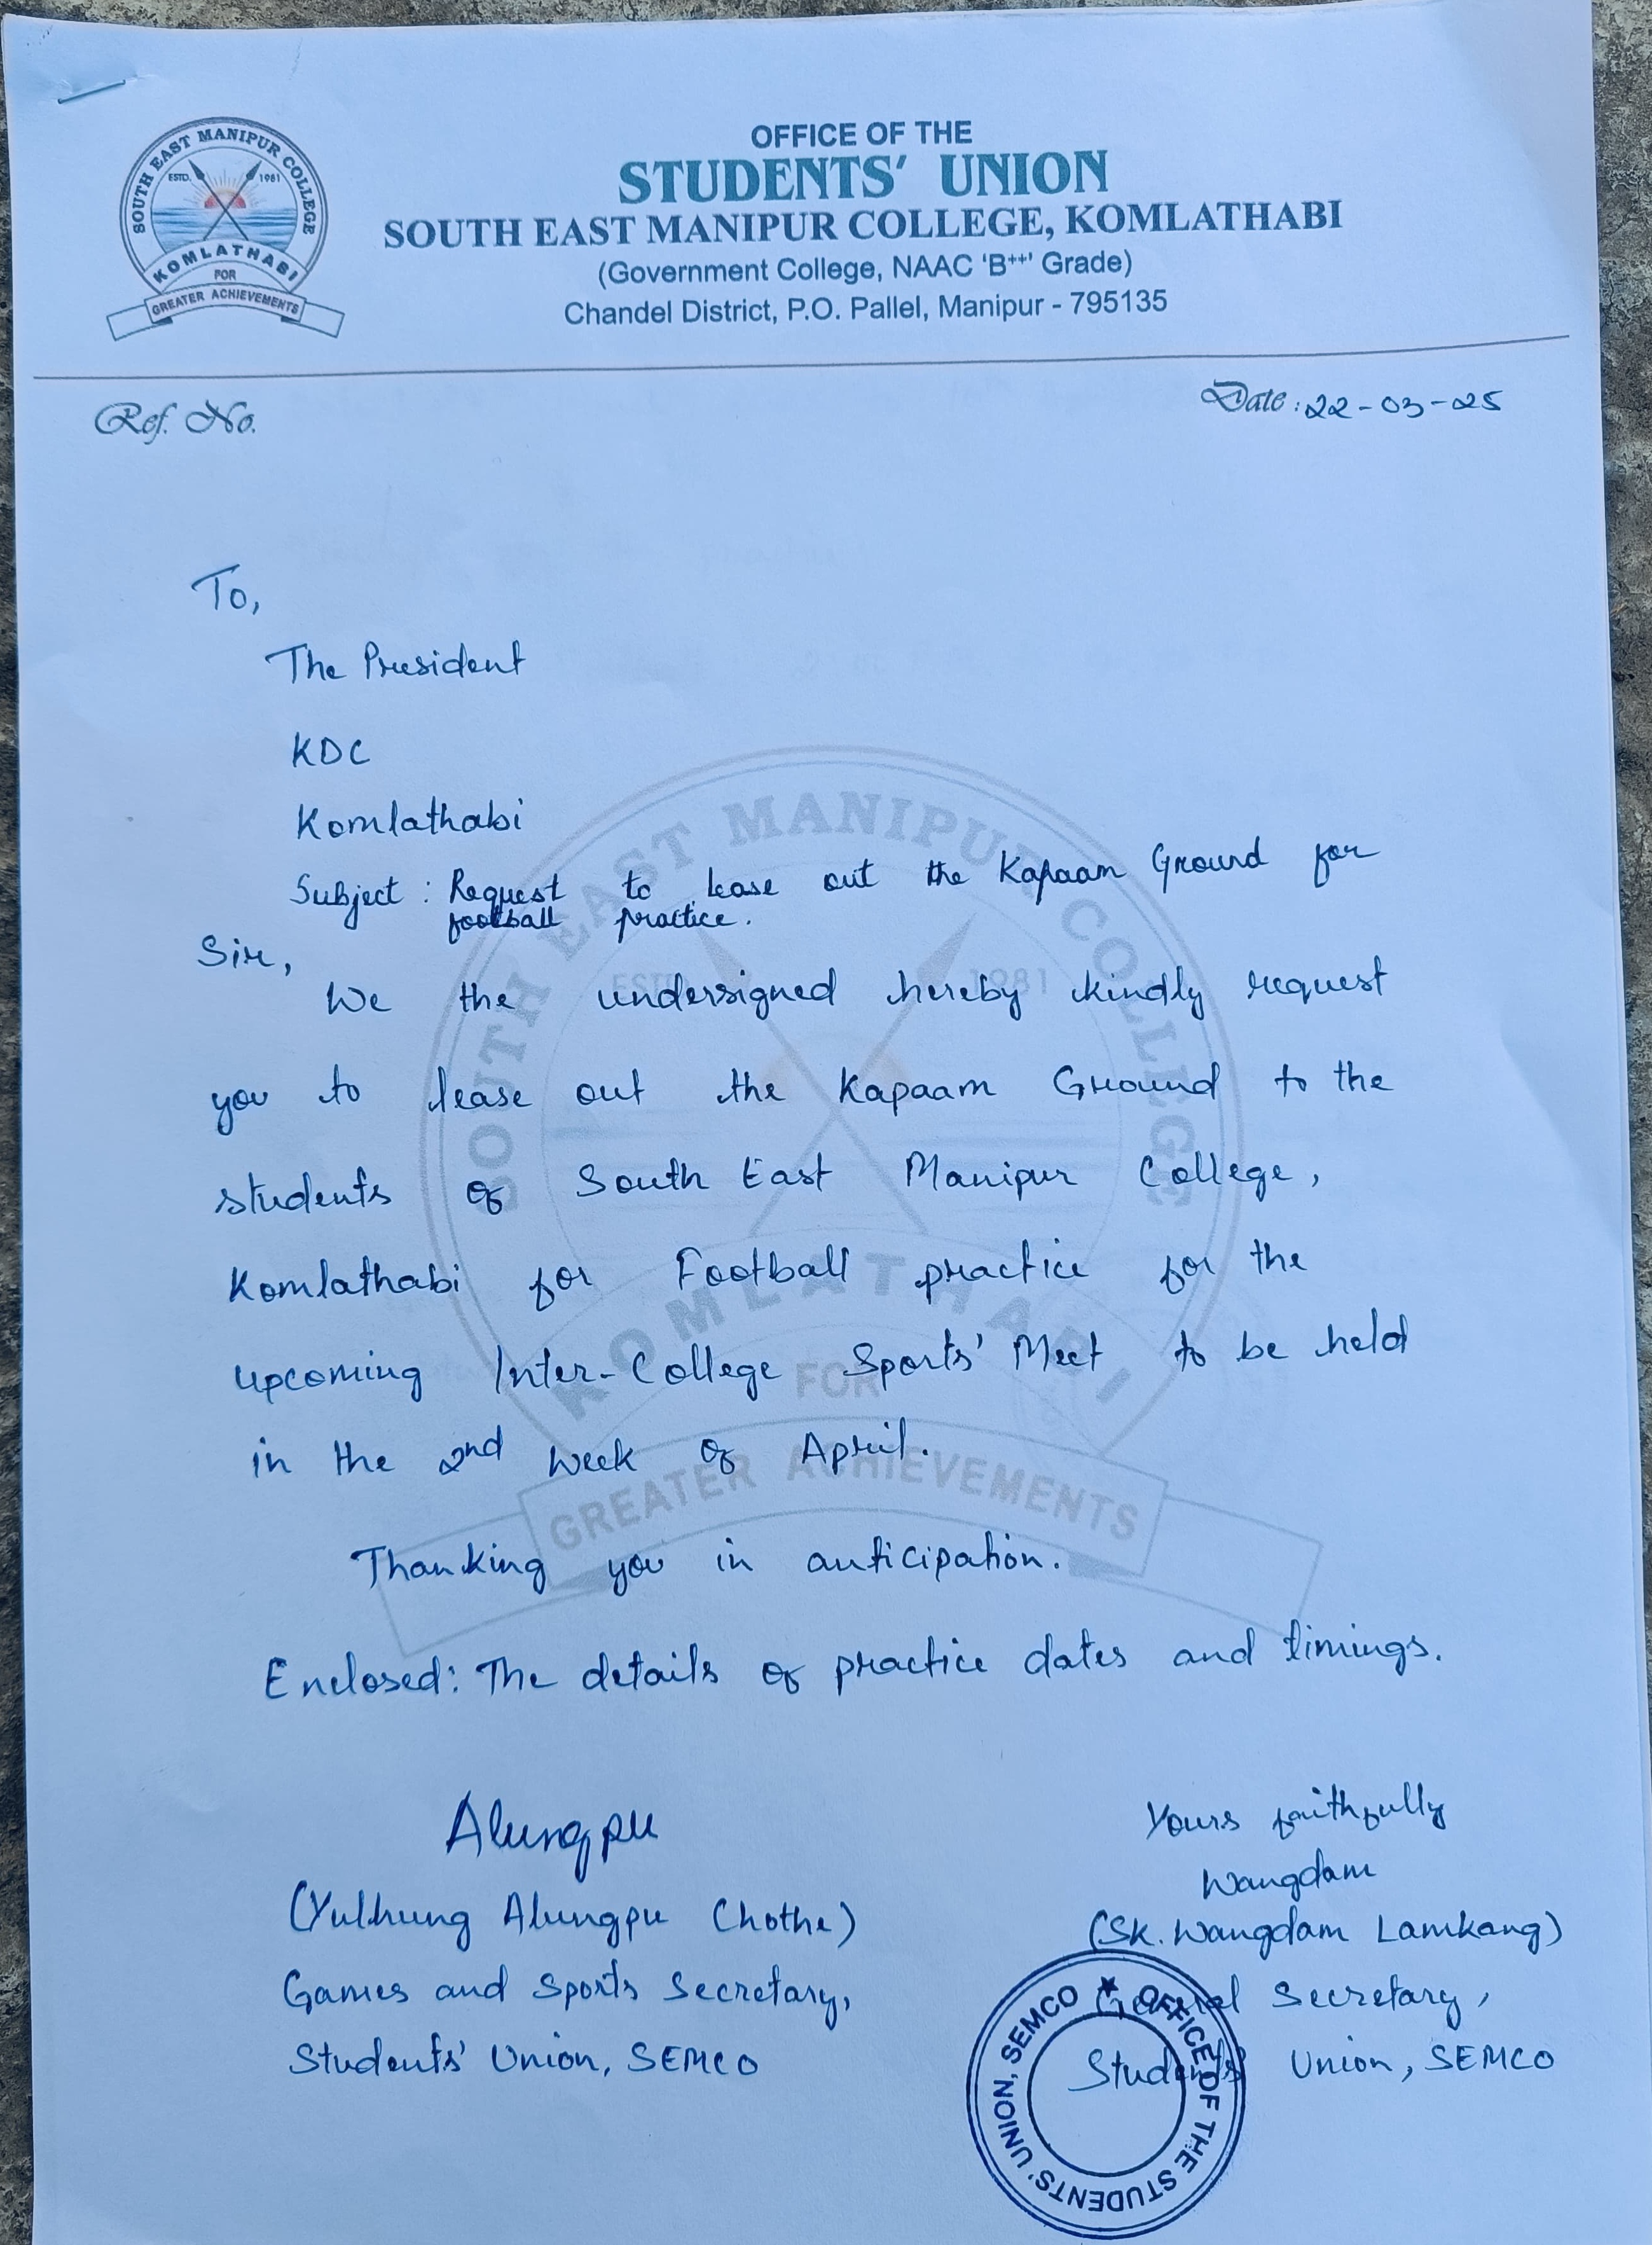 SOUTH EAST MANIPUR COLLEGE
ESTD. 1981
KOMLATHABI
FOR
GREATER ACHIEVEMENTS
OFFICE OF THE
STUDENTS' UNION
SOUTH EAST MANIPUR COLLEGE, KOMLATHABI
(Government College, NAAC 'B++' Grade)
Chandel District, P.O. Pallel, Manipur - 795135
Ref. No.
Date : 22-03-25
To,
The President
KDC
Komlathabi
Subject : Request to lease out the Kapaam Ground for
football practice.
Sir,
We the undersigned hereby kindly request
you to lease out the Kapaam Ground to the
students of South East Manipur College,
Komlathabi for Football practice for the
upcoming Inter-College Sports' Meet to be held
in the 2nd week of April.
Thanking you in anticipation.
Enclosed: The details of practice dates and timings.
Alungpu
(Yulhung Alungpu Chothe)
Games and Sports Secretary,
Students' Union, SEMCO
Yours faithfully
Wangdam
(Sk. Wangdam Lamkang)
General Secretary,
Students' Union, SEMCO
OFFICE OF THE STUDENTS' UNION, SEMCO
SOUTH EAST MANIPUR COLLEGE
ESTD. 1981
KOMLATHABI
FOR
GREATER ACHIEVEMENTS